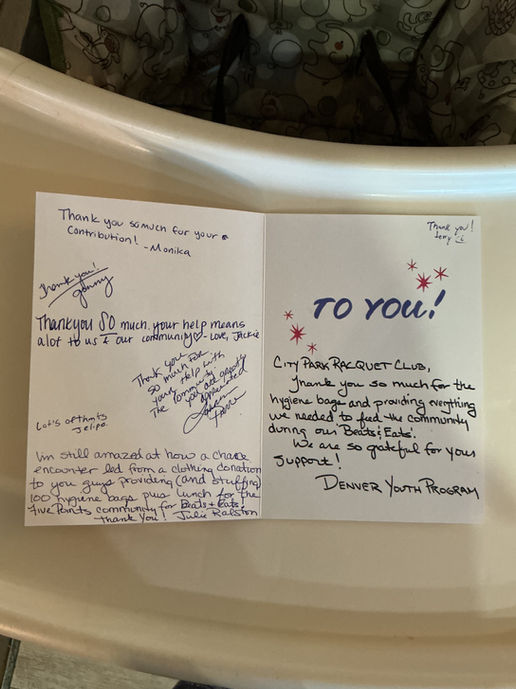 Thank you so much for your
Contribution! -Monika
Thank you!
Thankyou SO much, your help means
alot to us & our community♡- Love, Jackie
Thank you
so much for
your help with
the community
you are greatly
appreciated
Lots of thnks
I'm still amazed at how a chance
encounter led from a clothing donation
to you guys providing (and stuffing)
100 hygiene bags plus lunch for the
Five Points community for Beats+Eats!
Thank You! Julie Ralston
Thank you!
TO YOU!
CITY PARK RACQUET CLUB,
Thank you so much for the
hygiene bags and providing everything
we needed to feed the community
during our 'Beats & Eats'.
We are so grateful for your
support!
DENVER YOUTH PROGRAM